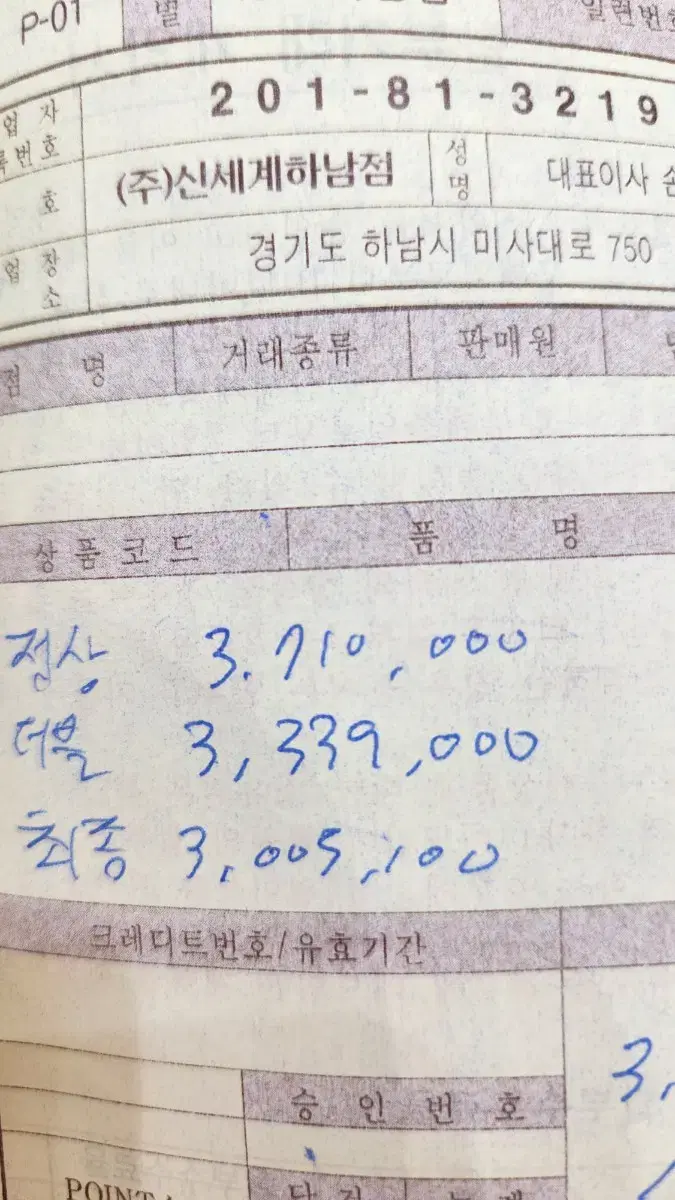 P-01 별 일련번호
업 자 201-81-3219
록번호
호 (주)신세계하남점 성명 대표이사 손
업 장 소 경기도 하남시 미사대로 750
점 명 거래종류 판매원
상품코드 품 명
정상 3.710,000
더블 3,339,000
최종 3,005,100
크레디트번호/유효기간
3,
승 인 번 호
POINT